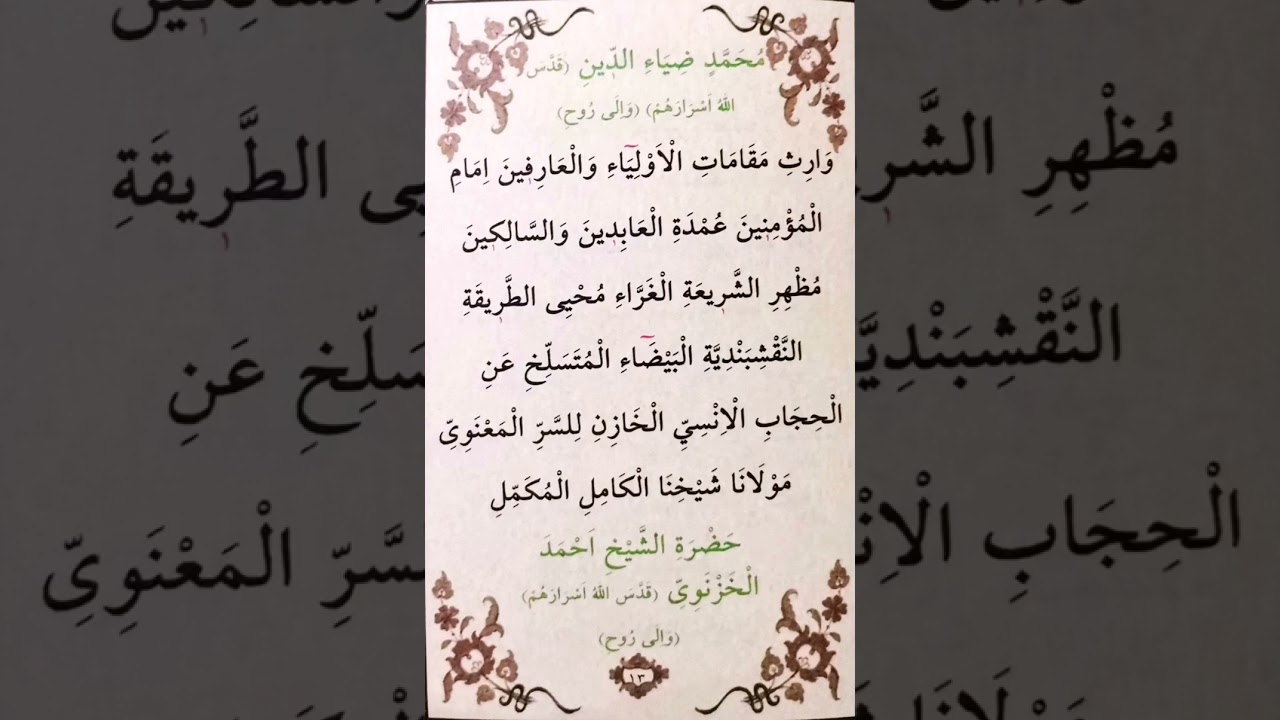 مُحَمَّدٍ ضِيَاءِ الدّٖينِ (قَدَّسَ
اللّٰهُ اَسْرَارَهُمْ) (وَاِلَى رُوحِ)
وَارِثِ مَقَامَاتِ الْاَوْلِيَٓاءِ وَالْعَارِفٖينَ اِمَامِ
الْمُؤْمِنٖينَ عُمْدَةِ الْعَابِدٖينَ وَالسَّالِكٖينَ
مُظْهِرِ الشَّرٖيعَةِ الْغَرَّاءِ مُحْيِى الطَّرٖيقَةِ
النَّقْشِبَنْدِيَّةِ الْبَيْضَٓاءِ الْمُتَسَلِّخِ عَنِ
الْحِجَابِ الْاِنْسِيِّ الْخَازِنِ لِلسَّرِّ الْمَعْنَوِىِّ
مَوْلَانَا شَيْخِنَا الْكَامِلِ الْمُكَمِّلِ
حَضْرَةِ الشَّيْخِ اَحْمَدَ
الْخَزْنَوِىِّ (قَدَّسَ اللّٰهُ اَسْرَارَهُمْ)
(وَاِلَى رُوحِ)
١٣